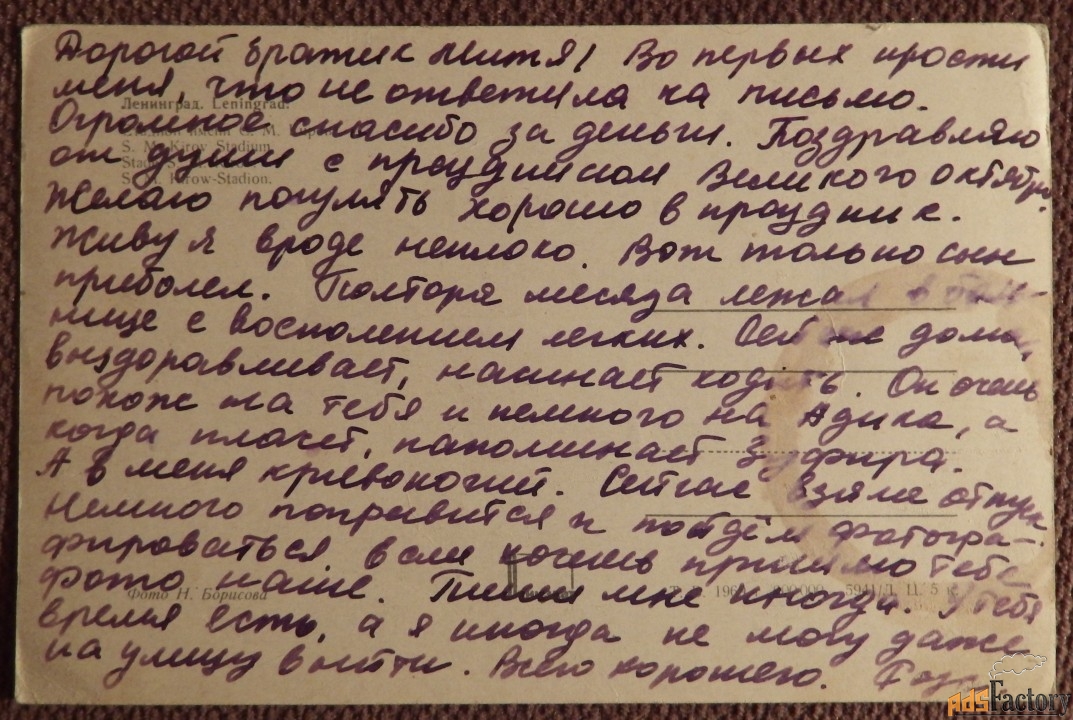 Дорогой братик Митя! Во первых прости
меня, что не ответила на письмо.
Ленинград. Leningrad.
Огромное спасибо за деньги. Поздравляю
S. M. Kirow Stadium
от души с праздником Великого октября.
S. M. Kirow-Stadion.
Желаю погулять хорошо в праздник.
Живу я вроде неплохо. Вот только сын
приболел. Полтора месяца лежал в боль-
нице с восполением легких. Сейчас дома,
выздоравливает, начинает ходить. Он очень
похож на тебя и немного на Адика, а
когда плачет, напоминает Зуфира.
А в меня кривоногий. Сейчас взяла отпуск
Немного поправится и пойдём фотогра-
фироваться. Если хочешь пришлю тебе
фото наше. Пиши мне иногда. У тебя
Фото Н. Борисова
время есть, а я иногда не могу даже
на улицу выйти. Всего хорошего.
AdsFactory